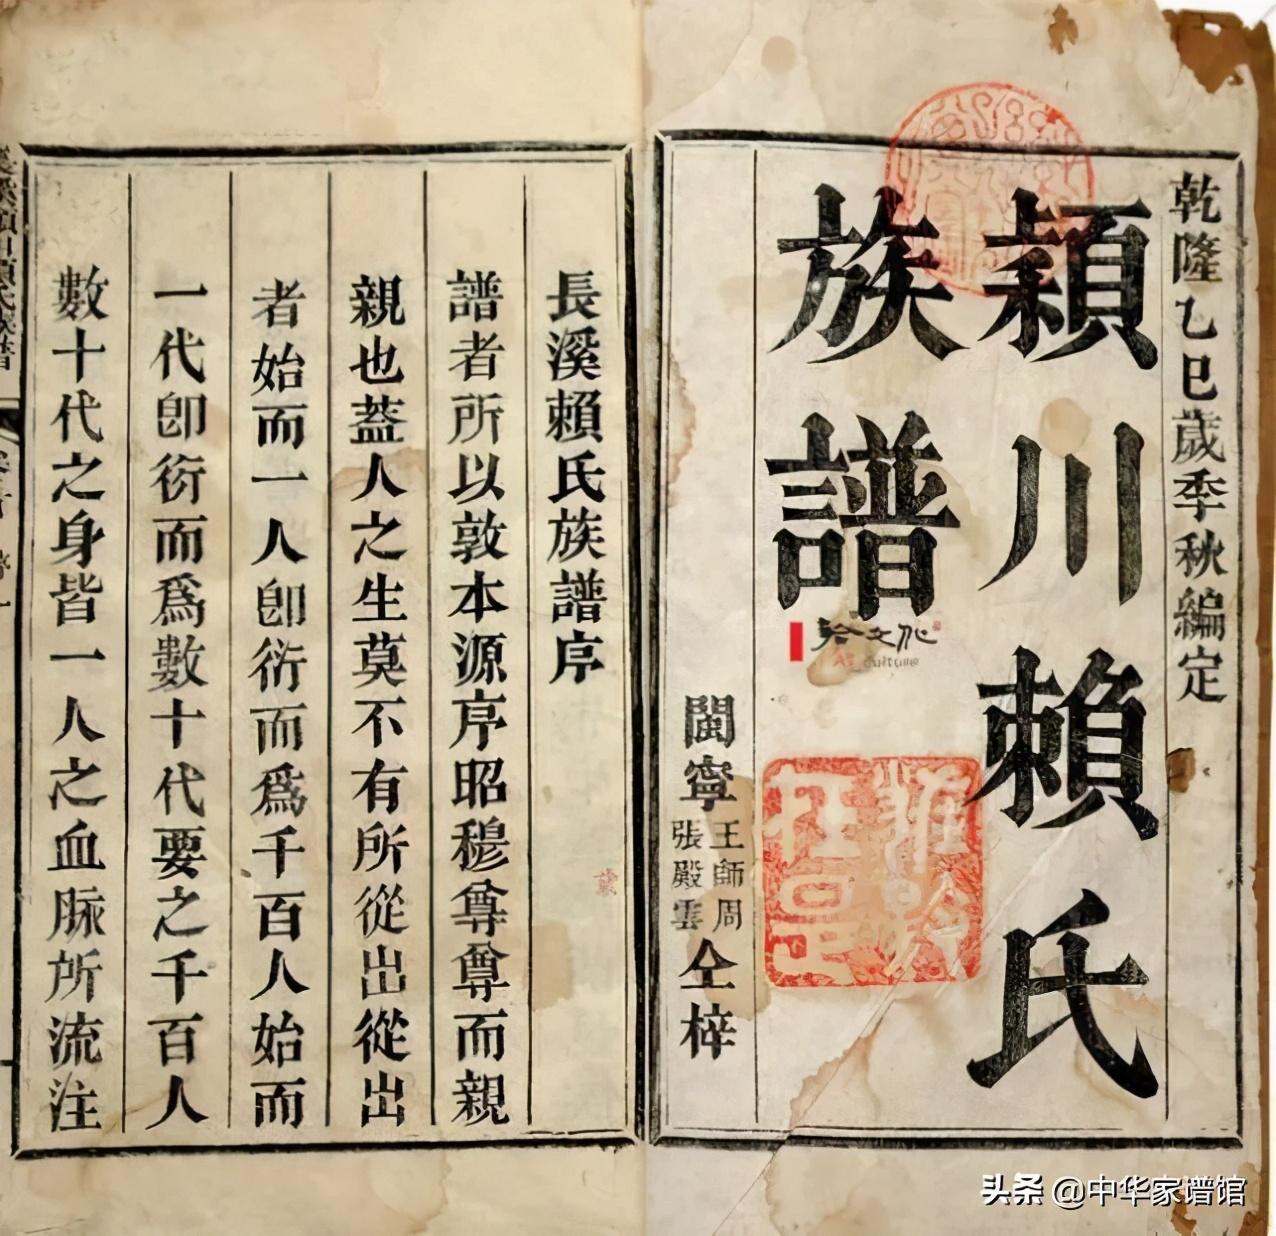 乾隆乙巳歲季秋編定
頴川賴氏
族譜
閩寧
王師周
張殿雲
仝梓
长溪賴氏族譜序
譜者所以敦本源序昭穆尊尊而親
親也蓋人之生莫不有所從出從出
者始而一人卽衍而爲千百人始而
一代卽衍而爲數十代要之千百人
數十代之身皆一人之血脉所流注
文化
culture
头条 @中华家谱馆